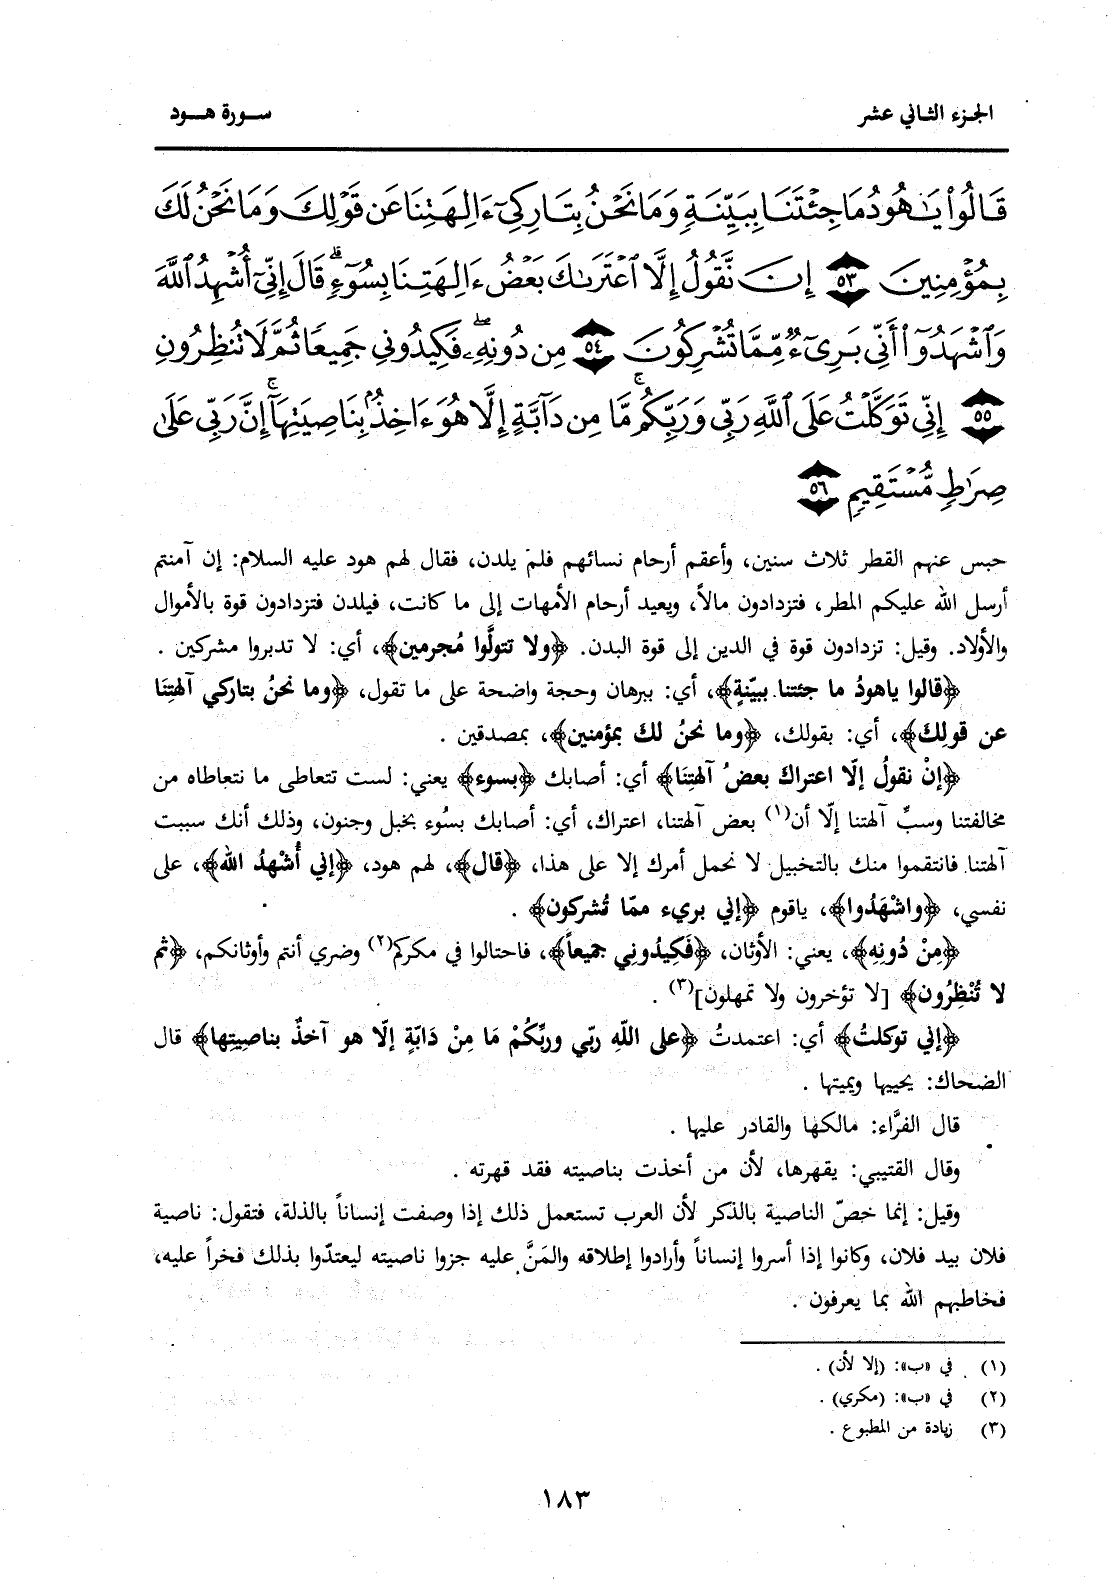 الجزء الثاني عشر
سورة هود
قَالُوا۟ يَـٰهُودُ مَا جِئْتَنَا بِبَيِّنَةٍ وَمَا نَحْنُ بِتَارِكِىٓ ءَالِهَتِنَا عَن قَوْلِكَ وَمَا نَحْنُ لَكَ
بِمُؤْمِنِينَ ٥٣ إِن نَّقُولُ إِلَّا ٱعْتَرَىٰكَ بَعْضُ ءَالِهَتِنَا بِسُوٓءٍ ۗ قَالَ إِنِّىٓ أُشْهِدُ ٱللَّهَ
وَٱشْهَدُوٓا۟ أَنِّى بَرِىٓءٌ مِّمَّا تُشْرِكُونَ ٥٤ مِن دُونِهِۦ ۖ فَكِيدُونِى جَمِيعًا ثُمَّ لَا تُنظِرُونِ
٥٥ إِنِّى تَوَكَّلْتُ عَلَى ٱللَّهِ رَبِّى وَرَبِّكُم ۚ مَّا مِن دَآبَّةٍ إِلَّا هُوَ ءَاخِذٌۢ بِنَاصِيَتِهَآ ۚ إِنَّ رَبِّى عَلَىٰ
صِرَٰطٍ مُّسْتَقِيمٍ ٥٦
حبس عنهم القطر ثلاث سنين، وأعقم أرحام نسائهم فلم يلدن، فقال لهم هود عليه السلام: إن آمنتم
أرسل الله عليكم المطر، فتزدادون مالاً، ويعيد أرحام الأمهات إلى ما كانت، فيلدن فتزدادون قوة بالأموال
والأولاد. وقيل: تزدادون قوة في الدين إلى قوة البدن. ﴿ولا تتولَّوا مُجرمين﴾، أي: لا تدبروا مشركين .
﴿قالوا ياهودُ ما جئتنا ببيّنةٍ﴾، أي: ببرهان وحجة واضحة على ما تقول، ﴿وما نحنُ بتاركي آلهتِنَا
عن قولِكَ﴾، أي: بقولك، ﴿وما نحنُ لكَ بمؤمنين﴾، بمصدقين .
﴿إنْ نقولُ إلّا اعتراكَ بعضُ آلهتِنَا﴾ أي: أصابك ﴿بسوء﴾ يعني: لست تتعاطى ما نتعاطاه من
مخالفتنا وسبِّ آلهتنا إلّا أن(١) بعض آلهتنا، اعتراك، أي: أصابك بسُوء بخبل وجنون، وذلك أنك سببت
آلهتنا فانتقموا منك بالتخبيل لا نحمل أمرك إلا على هذا، ﴿قال﴾، لهم هود، ﴿إني أُشْهدُ الله﴾، على
نفسي، ﴿واشْهَدُوا﴾، ياقوم ﴿إني بريء ممّا تُشركون﴾ .
﴿مِنْ دُونِهِ﴾، يعني: الأوثان، ﴿فَكِيدُونِي جميعاً﴾، فاحتالوا في مكركم(٢) وضري أنتم وأوثانكم، ﴿ثم
لا تُنْظِرُون﴾ [لا تؤخرون ولا تمهلون](٣) .
﴿إني توكلتُ﴾ أي: اعتمدتُ ﴿على اللّهِ ربّي وربِّكُمْ مَا مِنْ دَابّةٍ إلّا هو آخذٌ بناصيتِها﴾ قال
الضحاك: يحييها ويميتها .
قال الفرَّاء: مالكها والقادر عليها .
وقال القتيبي: يقهرها، لأن من أخذت بناصيته فقد قهرته .
وقيل: إنما خصّ الناصية بالذكر لأن العرب تستعمل ذلك إذا وصفت إنساناً بالذلة، فتقول: ناصية
فلان بيد فلان، وكانوا إذا أسروا إنساناً وأرادوا إطلاقه والمَنَّ عليه جزوا ناصيته ليعتدّوا بذلك فخراً عليه،
فخاطبهم الله بما يعرفون .
(١) في «ب»: (إلا لأن) .
(٢) في «ب»: (مكري) .
(٣) زيادة من المطبوع .
١٨٣